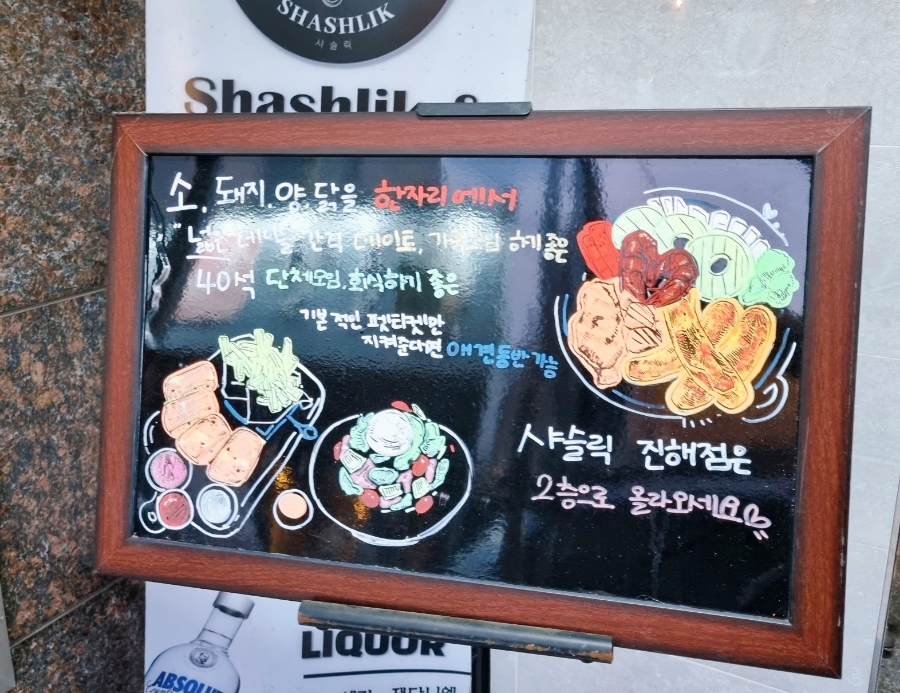 SHASHLIK
샤슬릭
Shashlik &
소, 돼지, 양, 닭을 한자리에서
"넓은 테이블 간격 데이트, 가족모임 하기 좋은
40석 단체모임, 회식하기 좋은
기본적인 펫티켓만
지켜준다면 애견동반 가능
샤슬릭 진해점은
2층으로 올라오세요
LIQUOR
ABSOLUT